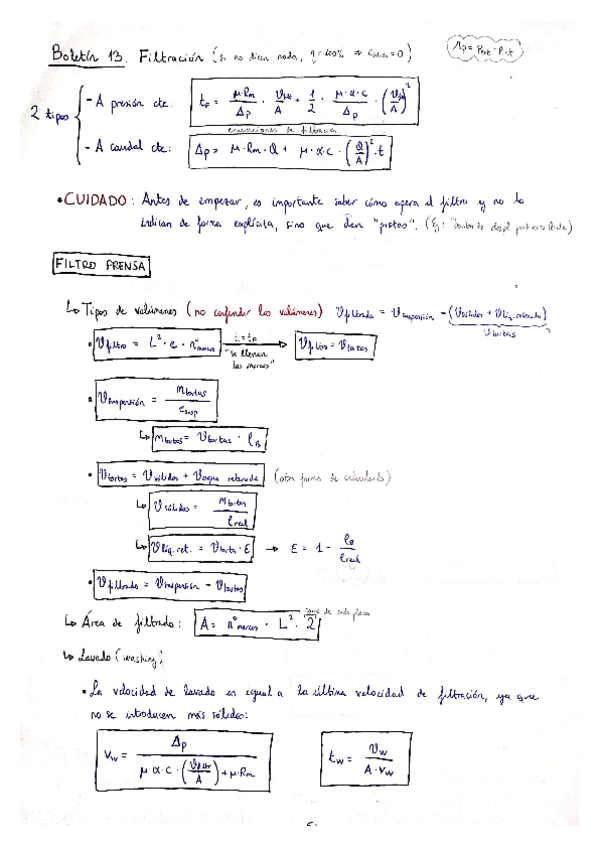 Boletín 13. Filtración (Si no dicen nada, η=100% ⇒ C=0)
Δp = Pent - Psat
2 tipos
- A presión cte: t_F = μ·Rm/Δp · V/A + 1/2 · μ·α·c/Δp · (V/A)²
ecuaciones de filtración
- A caudal cte: Δp = μ·Rm·Q + μ·α·c·(Q/A)²·t
• CUIDADO: Antes de empezar, es importante saber cómo opera el filtro y no lo
indican de forma explícita, sino que dan "pistas". (Ej:
FILTRO PRENSA
↳ Tipos de volúmenes (no confundir los volúmenes) Vfiltrado = Vsuspensión - (Vsólidos + Vliq. retenido)
Vtortas
• Vfiltro = L²·e·nºmarcos
t=tF
"se llenan
los marcos"
Vfiltro = Vtortas
• Vsuspensión = mtortas / Csusp
↳ mtortas = Vtortas · ρB
• Vtortas = Vsólidos + Vagua retenida (otra forma de calcularlo)
↳ Vsólidos = mtortas / ρreal
↳ Vliq. ret. = Vtorta · ε → ε = 1 - ρB/ρreal
• Vfiltrado = Vsuspensión - Vtortas
↳ Área de filtrado: A = nºmarcos · L² · 2
↳ Lavado (washing)
• La velocidad de lavado es igual a la última velocidad de filtración, ya que
no se introducen más sólidos:
Vw = Δp / μ·α·c·(V/A) + μ·Rm
tw = Vw / A·vw